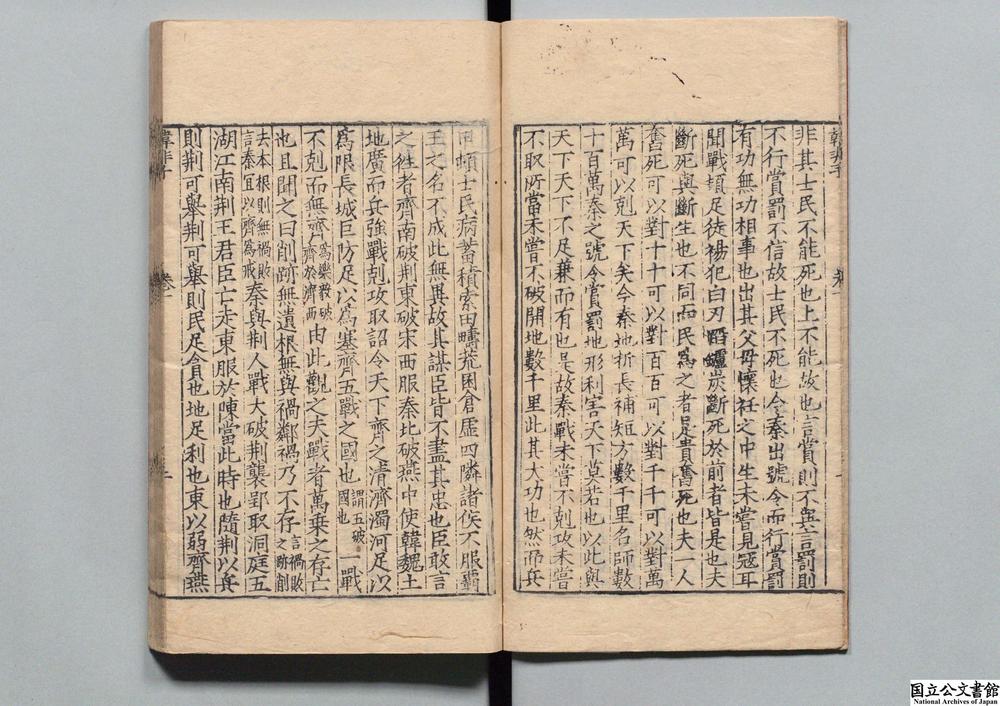 非其士民不能死也上不能故也言賞則不與言罰則
不行賞罰不信故士民不死也今秦出號令而行賞罰
有功無功相事也出其父母懷衽之中生未嘗見寇耳
聞戰頓足徒裼犯白刃蹈鑪炭斷死於前者皆是也夫
斷死與斷生也不同而民爲之者是貴奮死也夫一人
奮死可以對十十可以對百百可以對千千可以對萬
萬可以剋天下矣今秦地折長補短方數千里名師數
十百萬秦之號令賞罰地形利害天下莫若也以此與
天下天下不足兼而有也是故秦戰未嘗不剋攻未嘗
不取所當未嘗不破開地數千里此其大功也然而兵
甲頓士民病蓄積索田疇荒囷倉虛四隣諸侯不服霸
王之名不成此無異故其謀臣皆不盡其忠也臣敢言
之往者齊南破荆東破宋西服秦北破燕中使韓魏土
地廣而兵強戰剋攻取詔令天下齊之清濟濁河足以
爲限長城巨防足以爲塞齊五戰之國也謂五破國也一戰
不剋而無齊爲樂毅破齊於濟西由此觀之夫戰者萬乗之存亡
也且聞之曰削跡無遺根無與禍鄰禍乃不存言禍敗之跡削
去本根則無禍敗言秦宜以齊爲戒秦與荆人戰大破荆襲郢取洞庭五
湖江南荆王君臣亡走東服於陳當此時也隨荆以兵
則荆可舉荆可舉則民足貪也地足利也東以弱齊燕
韓非子 卷一
国立公文書館
National Archives of Japan